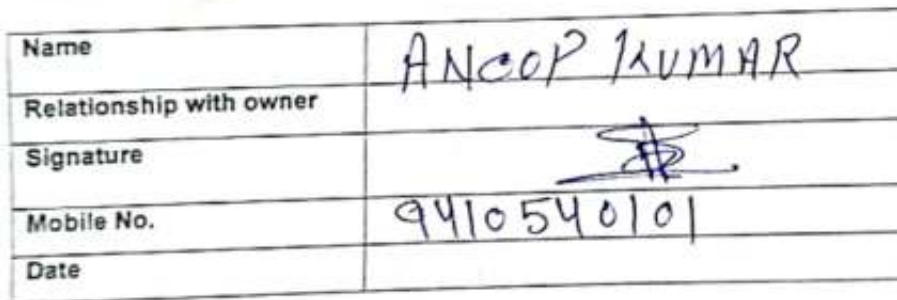 Name ANOOP KUMAR
Relationship with owner
Signature
Mobile No. 9410540101
Date